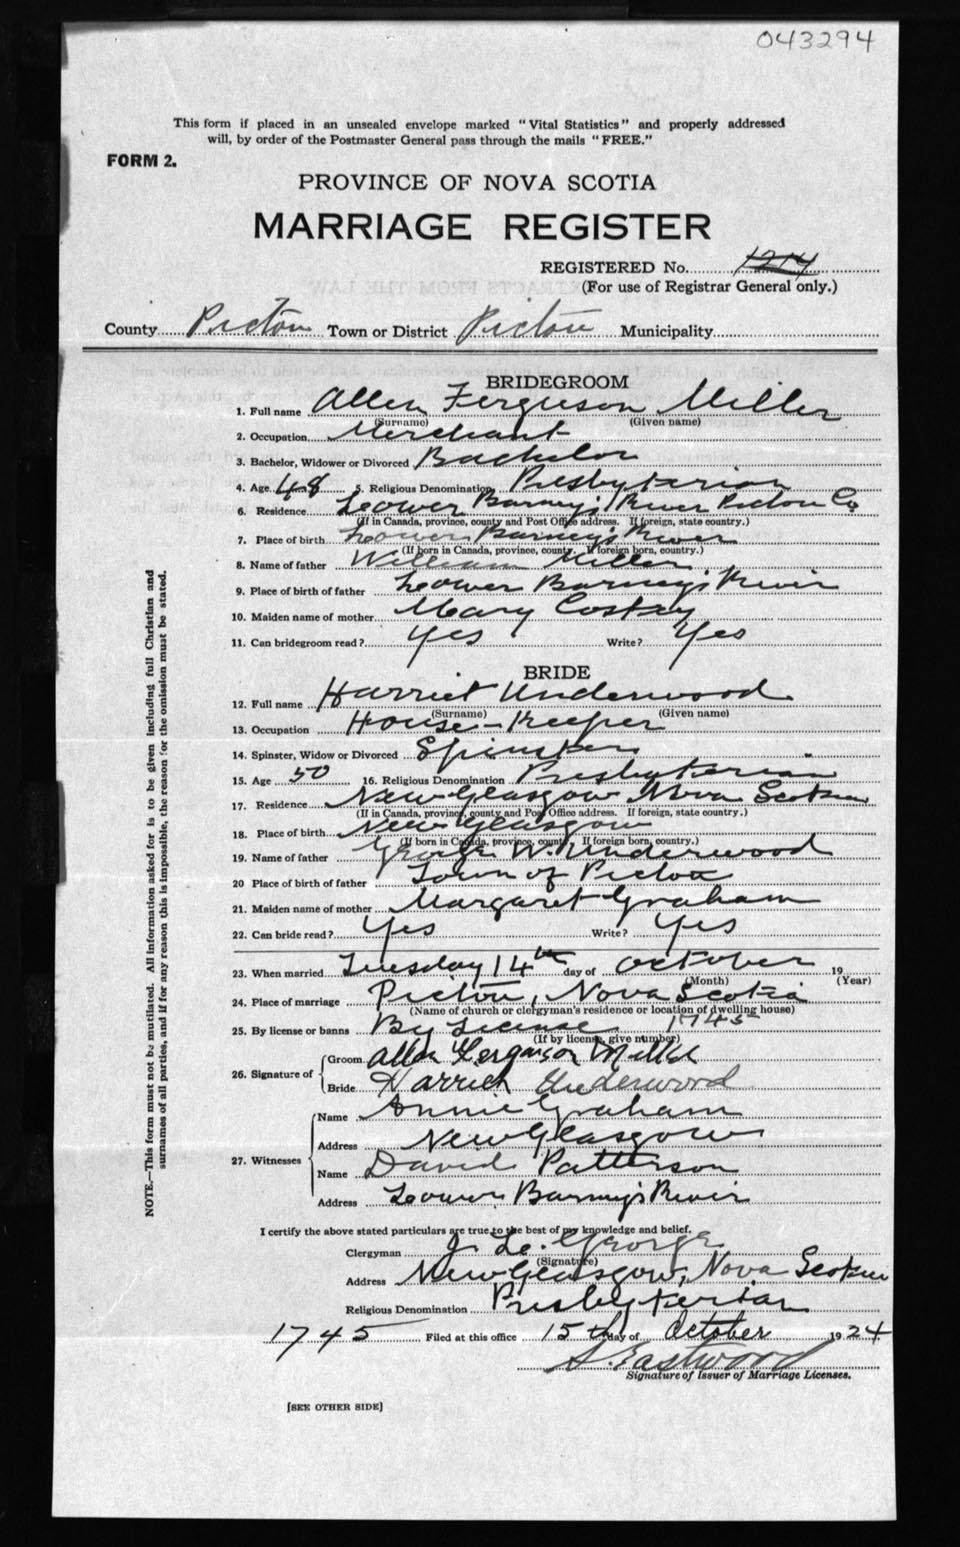 043294
This form if placed in an unsealed envelope marked "Vital Statistics" and properly addressed
will, by order of the Postmaster General pass through the mails "FREE."
FORM 2.
PROVINCE OF NOVA SCOTIA
MARRIAGE REGISTER
REGISTERED No. 1214
(For use of Registrar General only.)
County Pictou Town or District Pictou Municipality
BRIDEGROOM
1. Full name Allen Ferguson Miller
(Surname) (Given name)
2. Occupation Merchant
3. Bachelor, Widower or Divorced Bachelor
4. Age 48 5. Religious Denomination Presbyterian
6. Residence Lower Barney's River Pictou Co
(If in Canada, province, county and Post Office address. If foreign, state country.)
7. Place of birth Lower Barney's River
(If born in Canada, province, county. If foreign born, country.)
8. Name of father William Miller
9. Place of birth of father Lower Barney's River
10. Maiden name of mother Mary
11. Can bridegroom read? Yes Write? Yes
BRIDE
12. Full name Harriet Underwood
(Surname) (Given name)
13. Occupation House-Keeper
14. Spinster, Widow or Divorced Spinster
15. Age 50 16. Religious Denomination Presbyterian
17. Residence New Glasgow Nova Scotia
(If in Canada, province, county and Post Office address. If foreign, state country.)
18. Place of birth New Glasgow
(If born in Canada, province, county, If foreign born, country.)
19. Name of father George W. Underwood
20 Place of birth of father Town of Pictou
21. Maiden name of mother Margaret Graham
22. Can bride read? Yes Write? Yes
23. When married Tuesday 14th day of October 19
(Month) (Year)
24. Place of marriage Pictou, Nova Scotia
(Name of church or clergyman's residence or location of dwelling house)
25. By license or banns By License 1745
(If by license, give number)
26. Signature of Groom Allen Ferguson Miller
Bride Harriet Underwood
27. Witnesses Name Annie Graham
Address New Glasgow
Name David Patterson
Address Lower Barney's River
I certify the above stated particulars are true to the best of my knowledge and belief.
Clergyman George
(Signature)
Address New Glasgow, Nova Scotia
Religious Denomination Presbyterian
1745 Filed at this office 15th day of October 1924
S. Eastwood
Signature of Issuer of Marriage Licenses.
[SEE OTHER SIDE]
NOTE.—This form must not be mutilated. All information asked for is to be given including full Christian and
surnames of all parties, and if for any reason this is impossible, the reason for the omission must be stated.